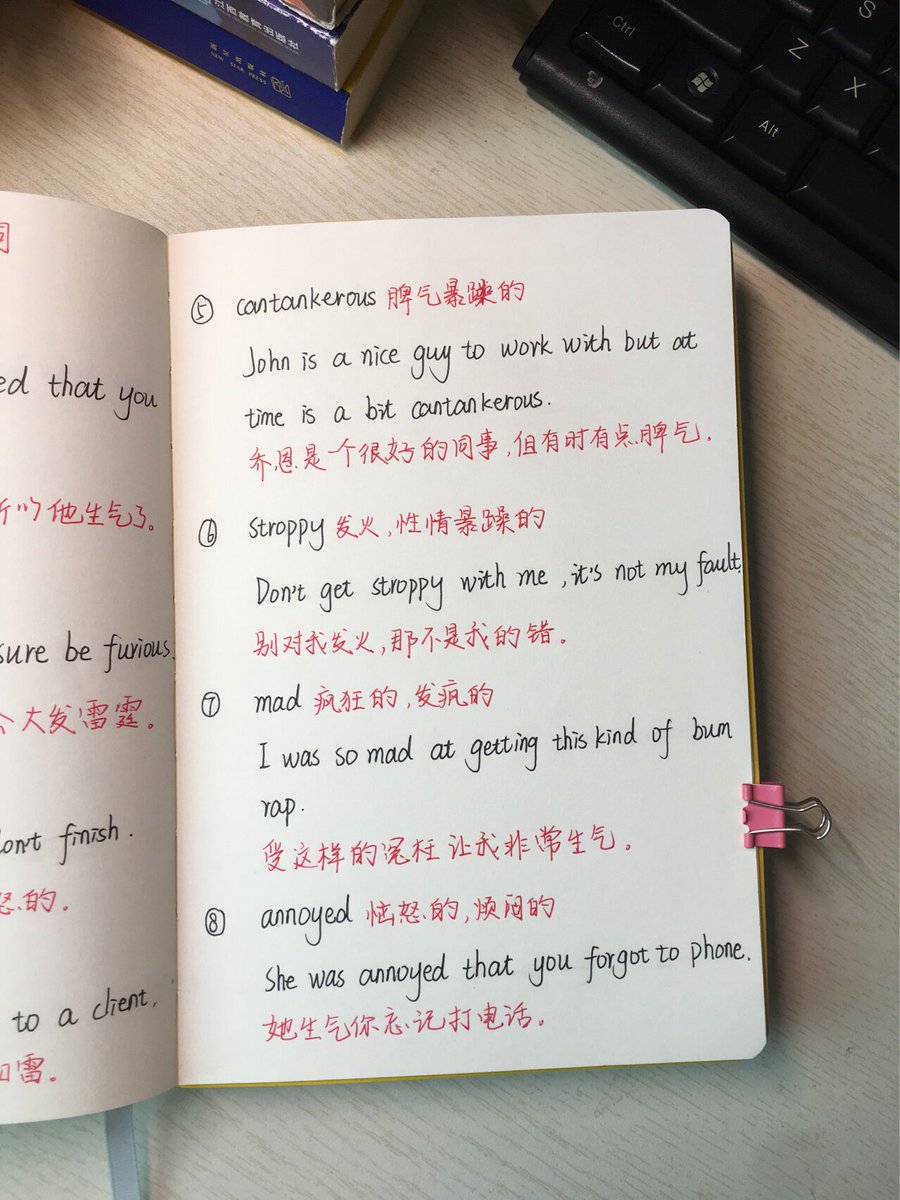 江西教育出版社
新星出版社
NEW STAR PRESS
Ctrl
Alt
Z
X
S
词
ed that you
他生气了。
sure be furious.
大发雷霆。
don't finish.
怒的。
to a client.
雷。
⑤ cantankerous 脾气暴躁的
John is a nice guy to work with but at
time is a bit cantankerous.
乔恩是一个很好的同事,但有时有点脾气.
⑥ stroppy 发火,性情暴躁的
Don't get stroppy with me, it's not my fault.
别对我发火,那不是我的错。
⑦ mad 疯狂的,发疯的
I was so mad at getting this kind of bum
rap.
受这样的冤枉让我非常生气。
⑧ annoyed 恼怒的,烦闷的
She was annoyed that you forgot to phone.
她生气你忘记打电话。